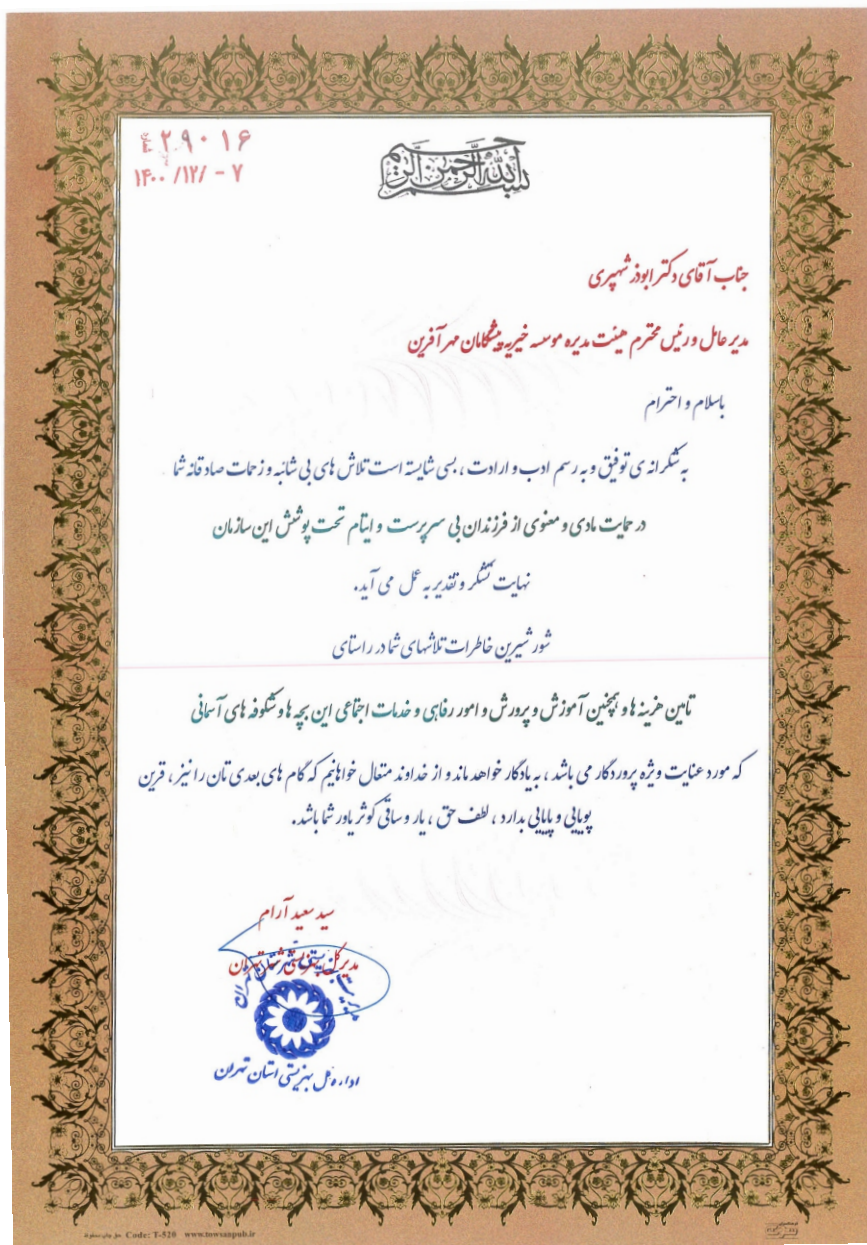 ٤٢٩٠١۶
۱۴۰۰/۱۲/-۷
بسم الله الرحمن الرحیم
جناب آقای دکتر ابوذر شهپری
مدیر عامل و رئیس محترم هیئت مدیره موسسه خیریه پیشگامان مهر آفرین
باسلام و احترام
به شکرانه ی توفیق و به رسم ادب و ارادت ، بسی شایسته است تلاش های بی شائبه و زحمات صادقانه شما
در حمایت مادی و معنوی از فرزندان بی سرپرست و ایتام تحت پوشش این سازمان
نهایت تشکر و تقدیر به عمل می آید.
شور شیرین خاطرات تلاشهای شما در راستای
تامین هزینه ها و همچنین آموزش و پرورش و امور رفاهی و خدمات اجتماعی این بچه ها و شکوفه های آسمانی
که مورد عنایت ویژه پروردگار می باشد ، به یادگار خواهد ماند و از خداوند متعال خواهانیم که گام های بعدی تان را نیز ، قرین
پویایی و پایایی بدارد ، لطف حق ، یار و ساقی کوثر یاور شما باشد.
سید سعید آرام
مدیر کل بهزیستی استان تهران
اداره کل بهزیستی استان تهران
Code: T-520 www.towsanpub.ir